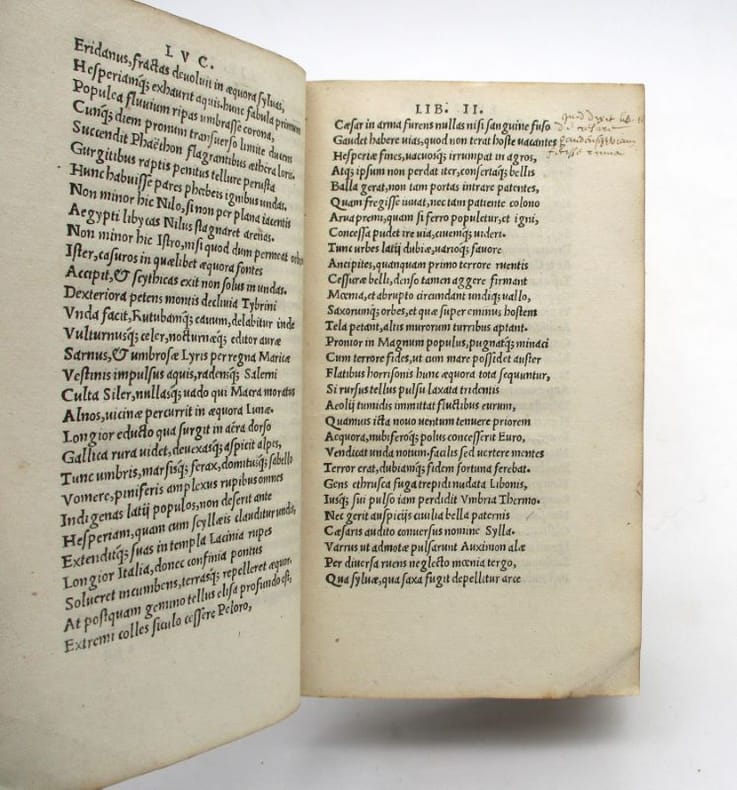 LVC.
Eridanus, fractas deuoluit in æquora syluas,
Hesperiamq; exhaurit aquis. hunc fabula primum
Populea fluuium ripas umbrasse corona,
Cunq; diem pronum transuerso limite ducens
Succendit Phaëthon flagrantibus æthera loris.
Gurgitibus raptis penitus tellure perusta
Hunc habuisse pares phœbeis ignibus undas.
Non minor hic Nilo, si non per plana iacentis
Aegypti libycas Nilus stagnaret arenas.
Non minor hic Istro, nisi quod dum permeat orbem
Ister, casuros in quælibet æquora fontes
Accipit, & scythicas exit non solus in undas.
Dexteriora petens montis decliuia Tybrini
Vnda facit, Rutubamq; cauum, delabitur inde
Vulturnusq; celer, nocturnæq; editor auræ
Sarnus, & umbrosæ Lyris per regna Maricæ
Vestinis impulsus aquis, radensq; Salerni
Culta Siler, nullasq; uado qui Macra moratus
Alnos, uicinæ percurrit in æquora Lunæ.
Longior educto qua surgit in aëra dorso
Gallica rura uidet, deuexasq; aspicit alpes,
Tunc umbris, marsisq; ferax, domitusq; sabello
Vomere, piniferis amplexus rupibus omnes
Indigenas latij populos, non deserit ante
Hesperiam, quam cum scyllæis clauditur undis,
Extenditq; suas in templa Lacinia rupes
Longior Italia, donec confinia pontus
Solueret incumbens, terrasq; repelleret æquor.
At postquam gemino tellus elisa profundo est,
Extremi colles siculo cessere Peloro,
LIB. II.
Cæsar in arma furens nullas nisi sanguine fuso
Gaudet habere uias, quod non terat hoste uacantes
Hesperiæ fines, uacuosq; irrumpat in agros,
Atq; ipsum non perdat iter, consertaq; bellis
Balla gerat, non tam portas intrare patentes,
Quam fregisse iuuat, nec tam patiente colono
Arua premi, quam si ferro populetur, et igni,
Concessa pudet ire uia, ciuemq; uideri.
Tunc urbes latij dubiæ, uarioq; fauore
Ancipites, quanquam primo terrore ruentis
Cessuræ belli, denso tamen aggere firmant
Mœnia, et abrupto circundant undiq; uallo,
Saxorumq; orbes, et quæ super eminus hostem
Tela petant, altis murorum turribus aptant.
Pronior in Magnum populus, pugnatq; minaci
Cum terrore fides, ut cum mare possidet auster
Flatibus horrisonis hunc æquora tota sequuntur,
Si rursus tellus pulsu laxata tridentis
Aeolij tumidis immittat fluctibus eurum,
Quamuis icta nouo uentum tenuere priorem
Aequora, nubiferoq; polus concesserit Euro,
Vendicat unda notum. facilis sed uertere mentes
Terror erat, dubiamq; fidem fortuna ferebat.
Gens ethrusca fuga trepidi nudata Libonis,
Iusq; sui pulso iam perdidit Vmbria Thermo.
Nec gerit auspicijs ciuilia bella paternis
Cæsaris audito conuersus nomine Sylla.
Varrus ut admotæ pulsarunt Auximon alæ
Per diuersa ruens neglecto mœnia tergo,
Qua syluæ, qua saxa fugit depellitur arce